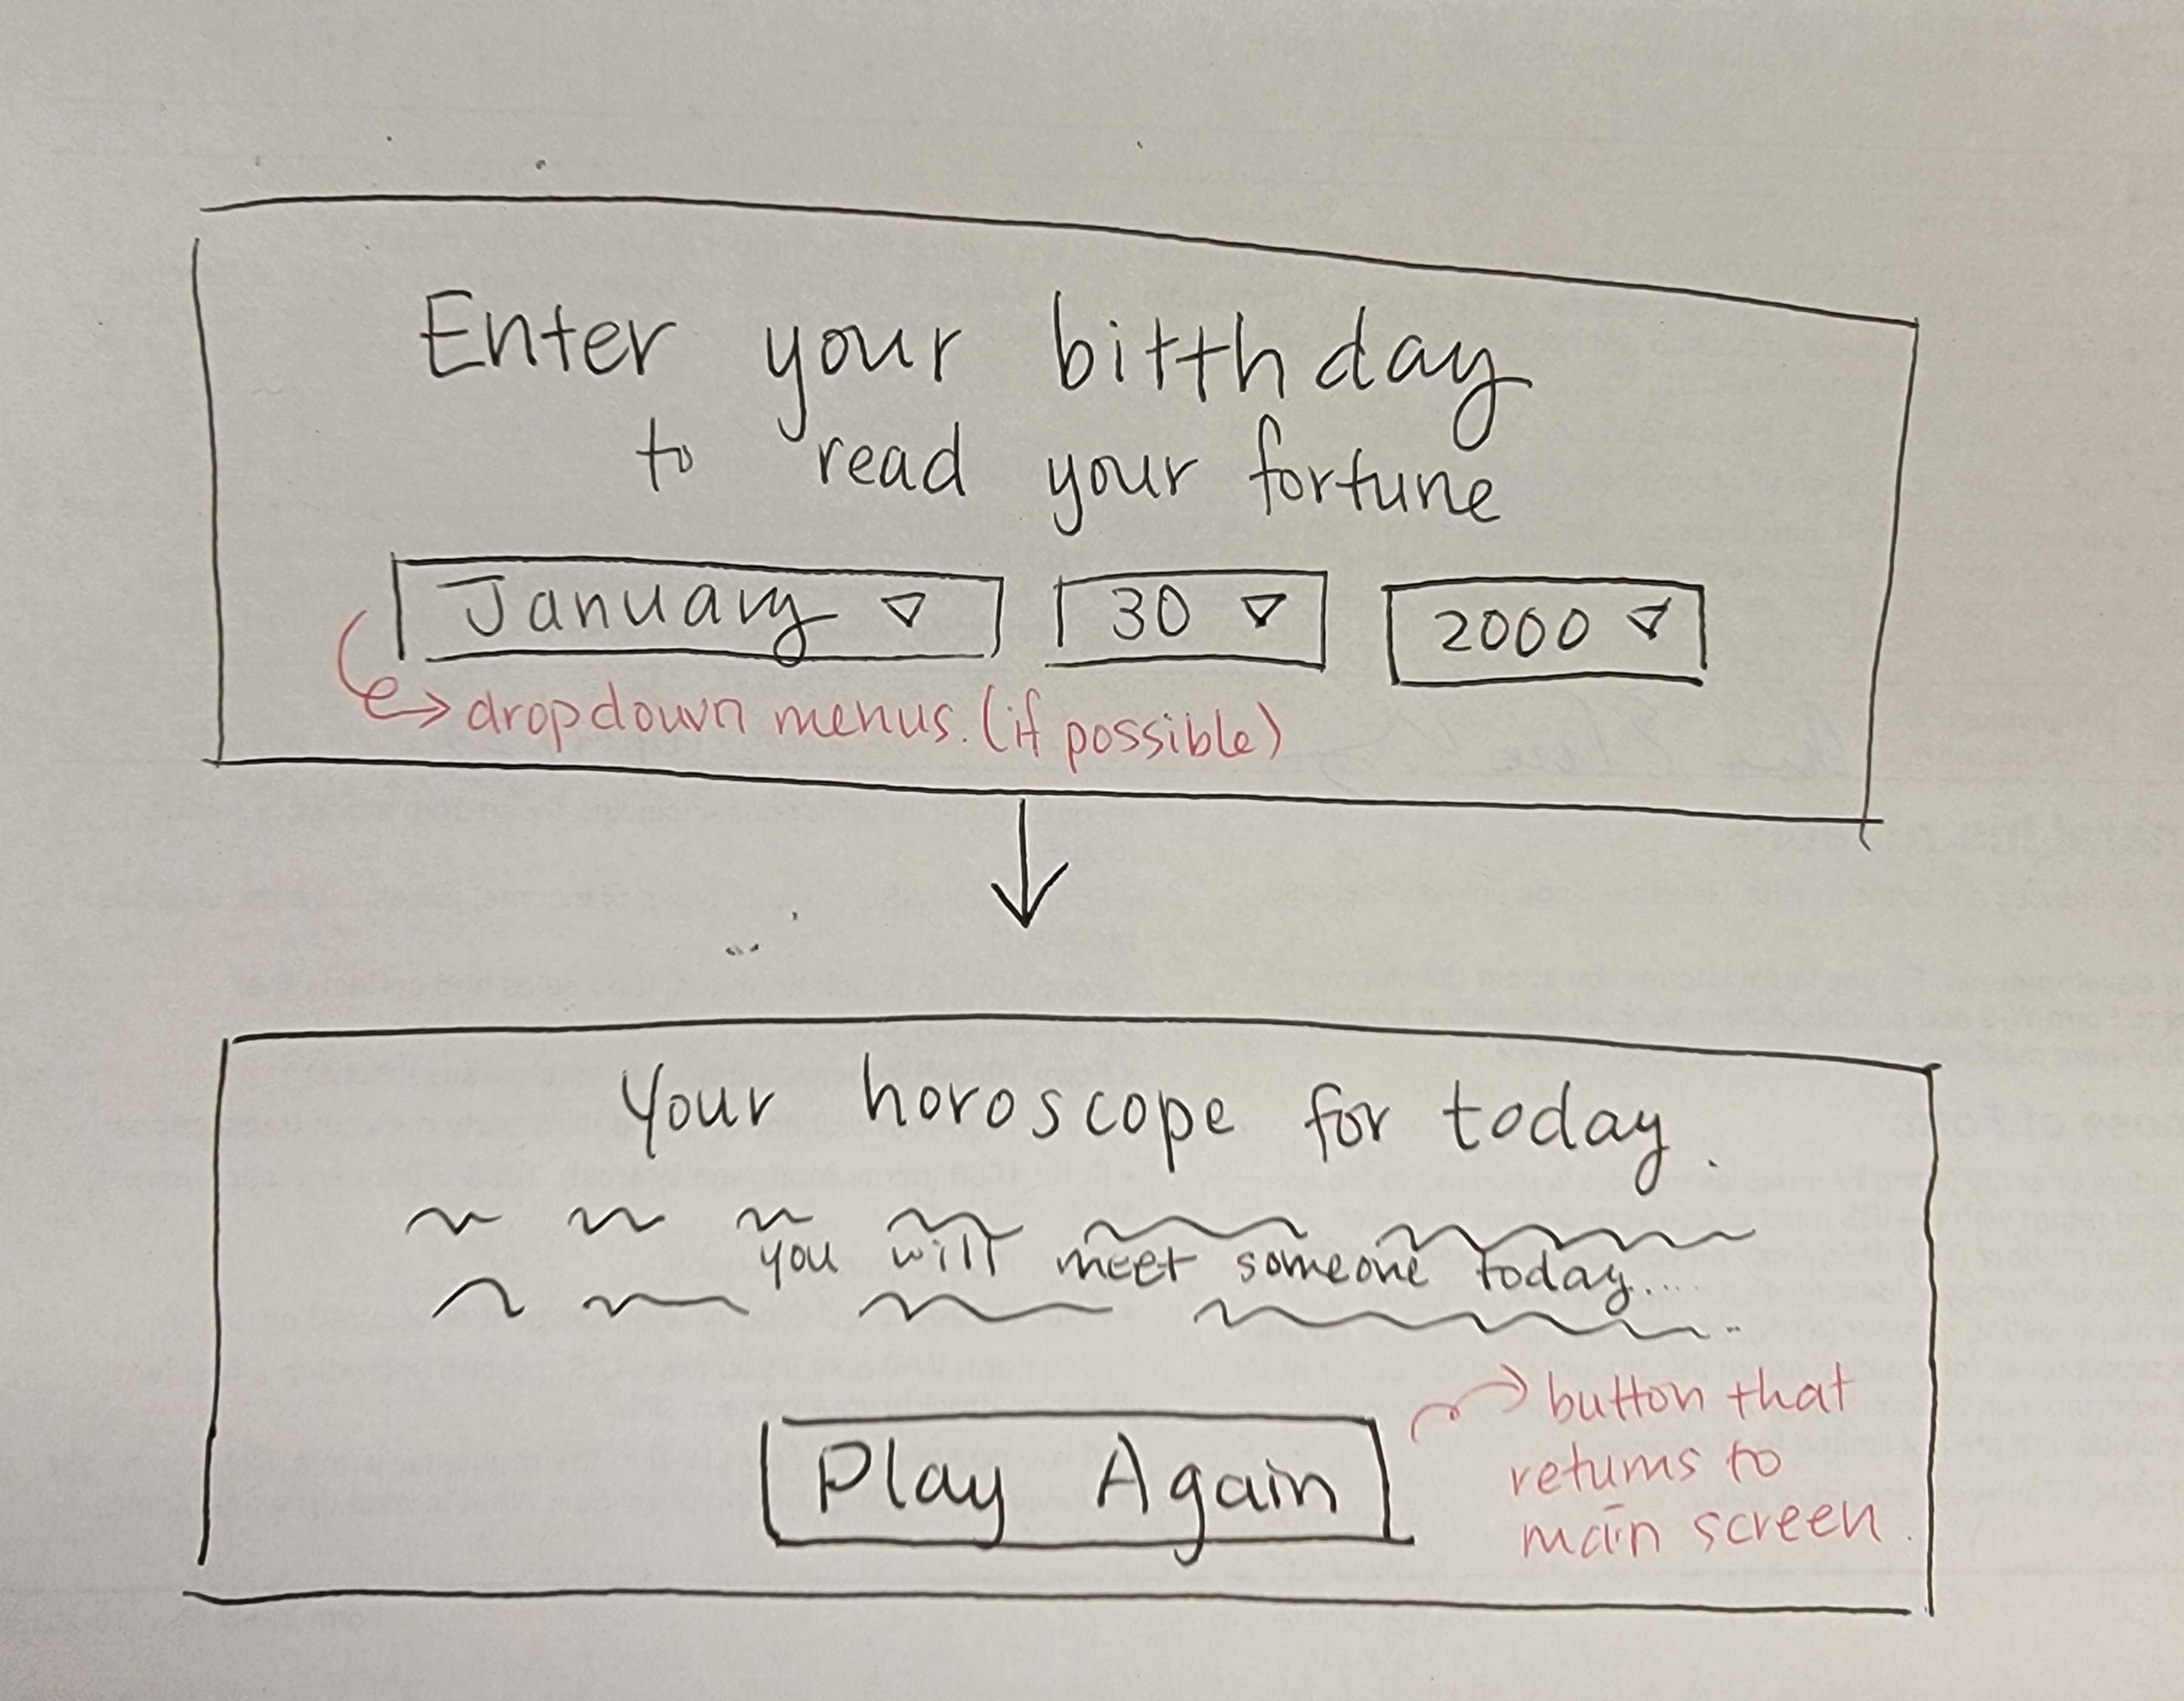 Enter your bitthday
to read your fortune
January 30 2000
dropdown menus. (if possible)
Your horoscope for today.
you will meet someone today....
button that
returns to
main screen.
Play Again